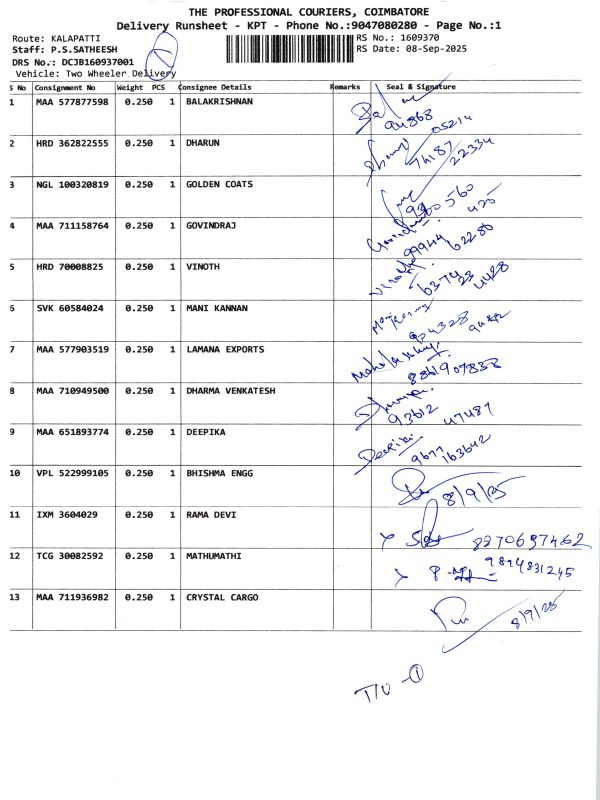 THE PROFESSIONAL COURIERS, COIMBATORE
Delivery Runsheet - KPT - Phone No.:9047080280 - Page No.:1
Route: KALAPATTI
RS No.: 1609370
Staff: P.S.SATHEESH
RS Date: 08-Sep-2025
DRS No.: DCJB160937001
Vehicle: Two Wheeler Delivery
S No Consignment No Weight PCS Consignee Details Remarks Seal & Signature
1 MAA 577877598 0.250 1 BALAKRISHNAN
94868 05214
2 HRD 362822555 0.250 1 DHARUN
74187 22334
3 NGL 100320819 0.250 1 GOLDEN COATS
4 MAA 711158764 0.250 1 GOVINDRAJ
99944 62280
5 HRD 70008825 0.250 1 VINOTH Vinoth
63743 23 4428
6 SVK 60584024 0.250 1 MANI KANNAN
7 MAA 577903519 0.250 1 LAMANA EXPORTS
8861907838
8 MAA 710949500 0.250 1 DHARMA VENKATESH
93612 47487
9 MAA 651893774 0.250 1 DEEPIKA Deepika
9677 163642
10 VPL 522999105 0.250 1 BHISHMA ENGG
8/9/25
11 IXM 3604029 0.250 1 RAMA DEVI
8270697462
12 TCG 30082592 0.250 1 MATHUMATHI
9894831245
13 MAA 711936982 0.250 1 CRYSTAL CARGO
8/9/25
T/U - 1